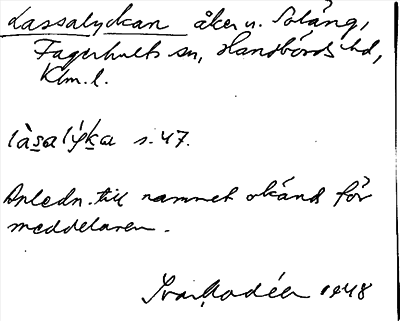 Lassalyckan åker u. Soläng,
Fagerhults sn, Handbörds hd,
Klm. l.
làsalýka s. 47.
Anledn. till namnet okänd för
meddelaren.
Ivar Modéer 1948